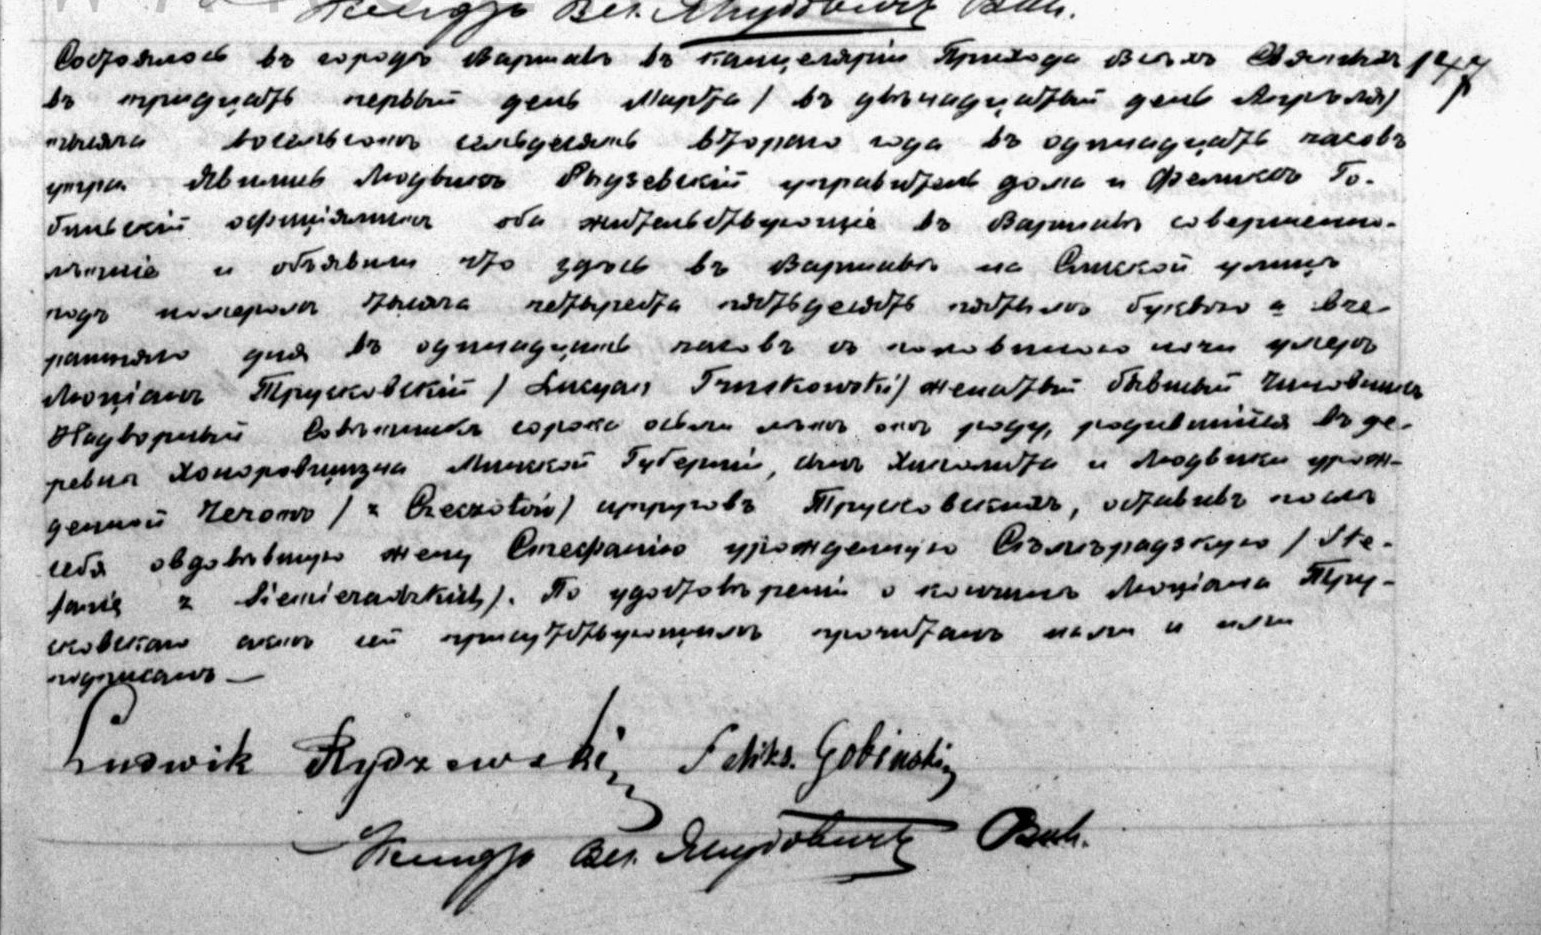 Ксендзъ Вик.
Состоялось въ городѣ Варшавѣ въ канцеляріи Прихода Всѣхъ Святыхъ 147
въ тридцать первый день Марта / въ двѣнадцатый день Апрѣля/
тысяча восемьсотъ семьдесятъ второго года въ одинадцать часовъ
утра. Явились Людвикъ Рыдзевскій управитель дома и Феликсъ Го-
бинскій офиціялистъ оба жительствующіе въ Варшавѣ совершенно-
лѣтніе и объявили что здѣсь въ Варшавѣ на улицѣ
подъ номеромъ тысяча четыреста пятьдесятъ пятымъ буквою а вче-
рашняго дня въ одинадцать часовъ съ половиною ночи умеръ
Люціанъ Трусковскій / Lucyan Truskowski/ женатый бывшій чиновникъ
Надворный Совѣтникъ сорока осьми лѣтъ отъ роду, родившійся въ де-
ревнѣ Хоноровщизна Минской Губерніи, сынъ Хиполита и Людвики урож-
денной Чечотъ / z Czeczotów/ супруговъ Трусковскихъ, оставивъ послѣ
себя овдовѣвшую жену Стефанію урожденную Сѣмѣрадзкую / Ste-
fanię z Siemieradzkich/. По удостовѣреніи о кончинѣ Люціана Тру-
сковскаго актъ сей присутствующимъ прочитанъ нами и ими
подписанъ —
Ludwik Rydzewski Feliks. Gobinski
Ксендзъ Вик.